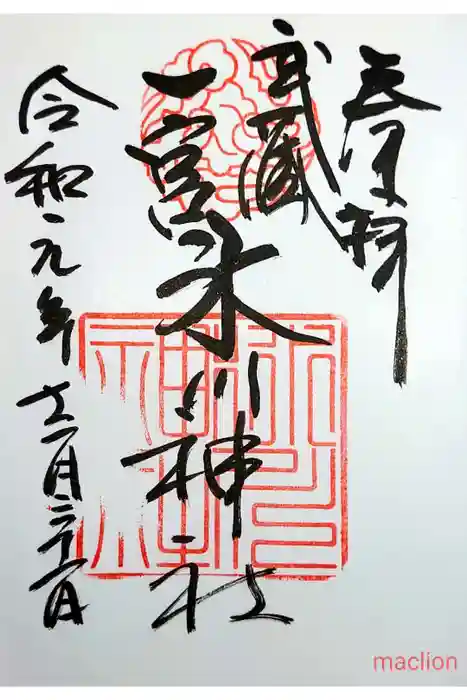 奉拝
武蔵
一宮氷川神社
令和元年十二月二十一日
maclion